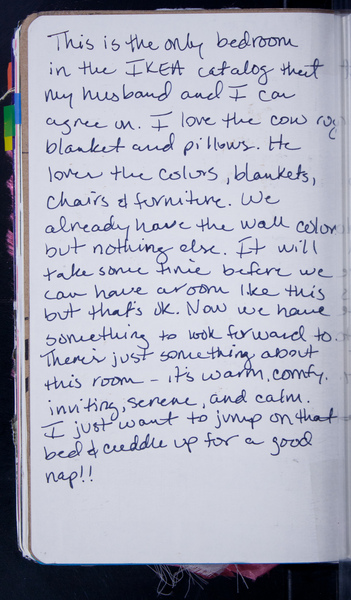 This is the only bedroom
in the IKEA catalog that
my husband and I can
agree on. I love the cow rug
blanket and pillows. He
loves the colors, blankets,
chairs & furniture. We
already have the wall color
but nothing else. It will
take some time before we
can have a room like this
but that's ok. Now we have
something to look forward to.
There's just something about
this room - it's warm, comfy,
inviting, serene, and calm.
I just want to jump on that
bed & cuddle up for a good
nap!!